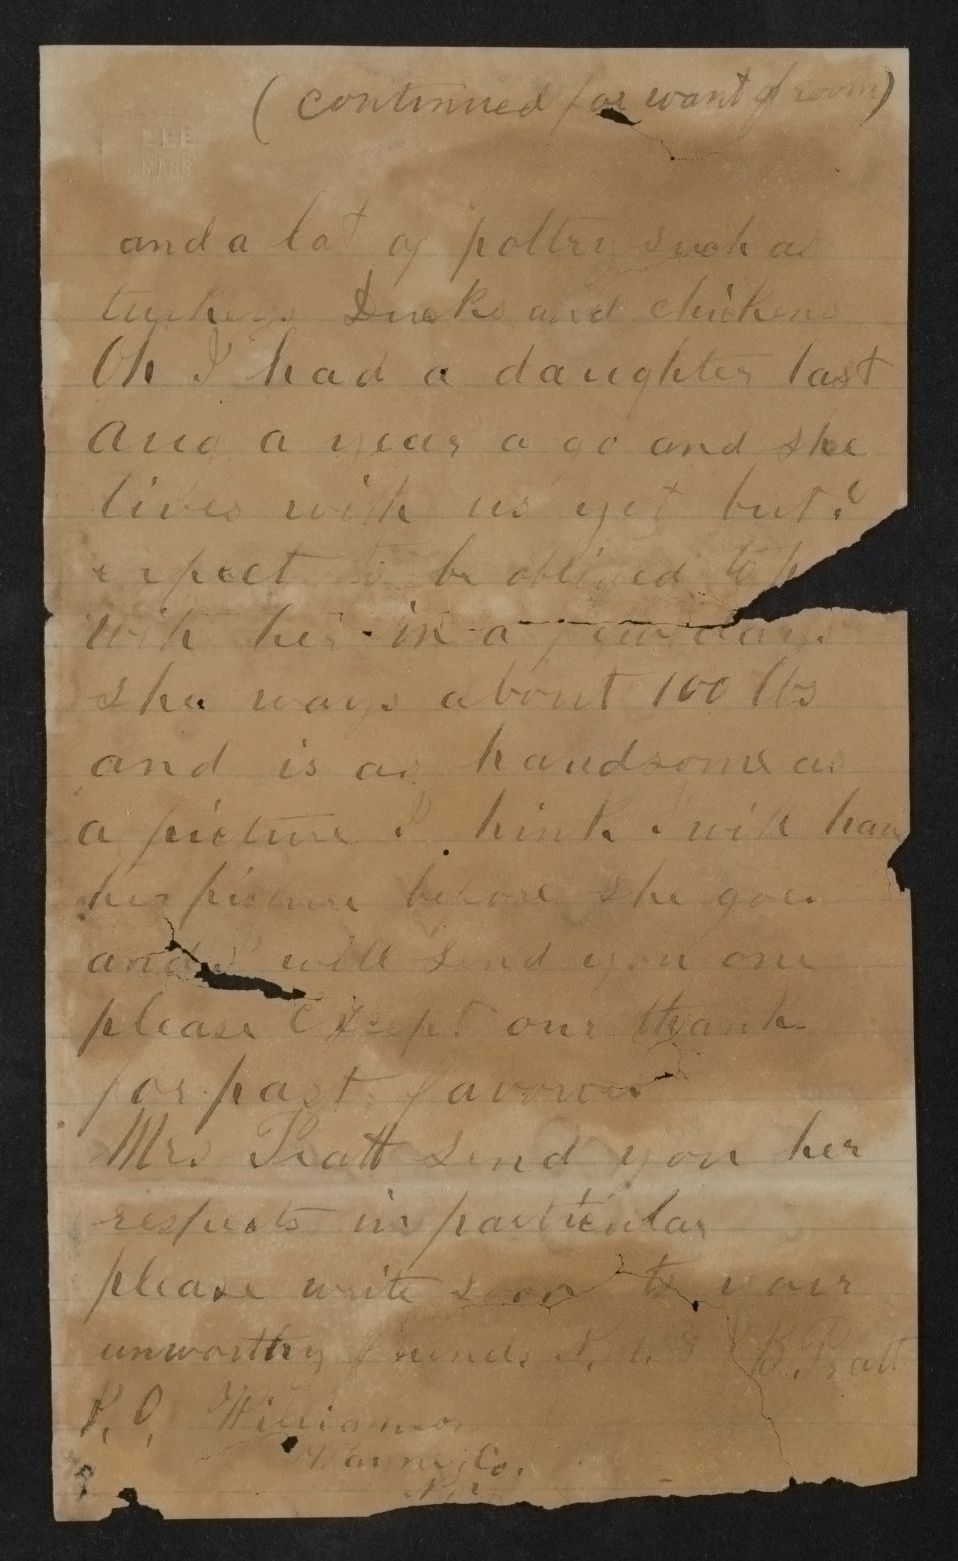 ( continued for want of room )
LEE
MASS
and a lot of poltry such as
turkeys Ducks and chickens
Oh I had a daughter last
Aug a year a go and she
lives with us yet but i
expect to be obliged to p
with her in a few days
she ways about 100 lbs
and is as handsome as
a picture I hink I will hav
her picture before she goes
and I will send you one
please Except our thanks
for past favours
Mrs Pratt send you her
respects in particular
please write soon to your
unworthy friends B. Pratt
P. O. Williamson
Wayne Co.
N.Y.